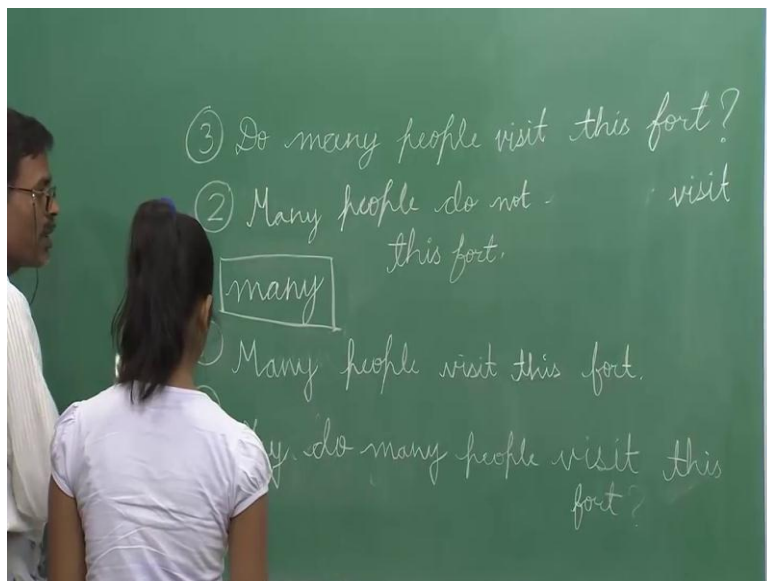 ③ Do many people visit this fort?
② Many people do not visit
this fort.
many
Many people visit this fort.
do many people visit this
fort?